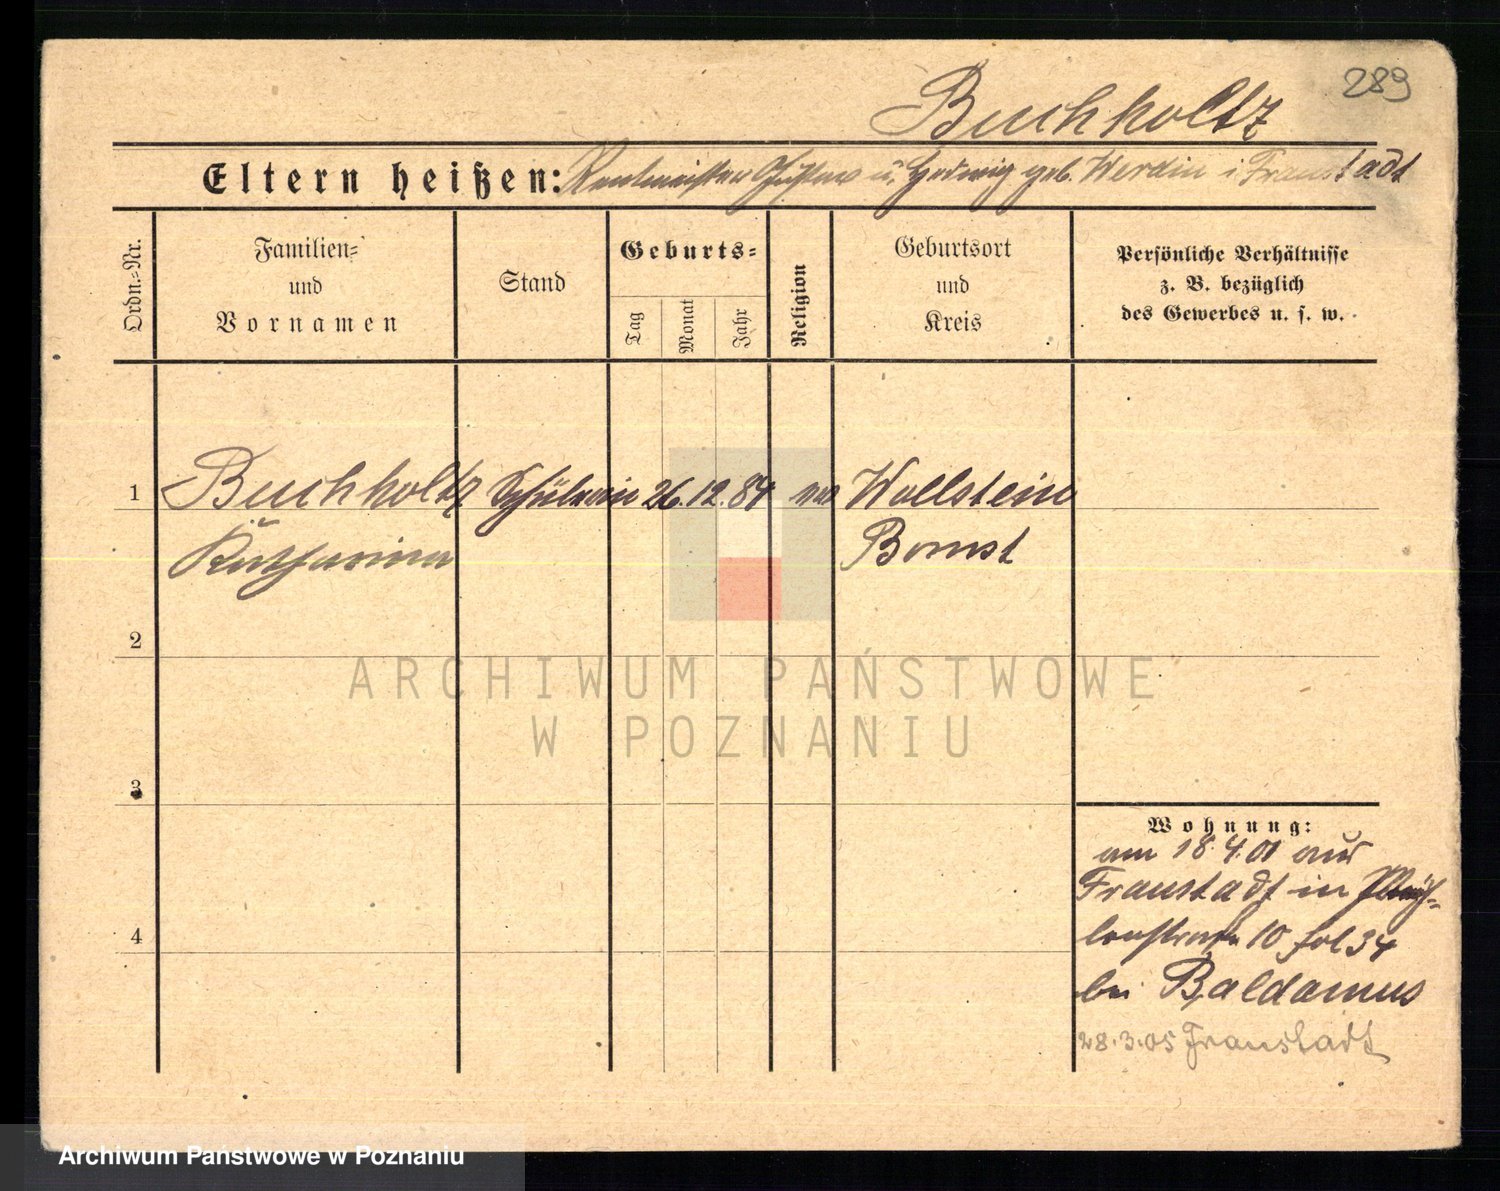 289
Buchholtz
Eltern heißen: Rentmeister Gustav u. Hedwig geb. Werdin i Fraustadt
Ordn.-Nr.
Familien-
und
Vornamen
Stand
Geburts-
Tag
Monat
Jahr
Religion
Geburtsort
und
Kreis
Persönliche Verhältnisse
z. B. bezüglich
des Gewerbes u. s. w.
1 Buchholtz Schülerin 26.12.84 Wollstein
Katharina Bomst
2
ARCHIWUM PAŃSTWOWE
W POZNANIU
3
4
Wohnung:
am 18.4.01 aus
Fraustadt in Müh-
lenstraße 10 fol 34
bei Baldamus
28.3.05 Fraustadt
Archiwum Państwowe w Poznaniu